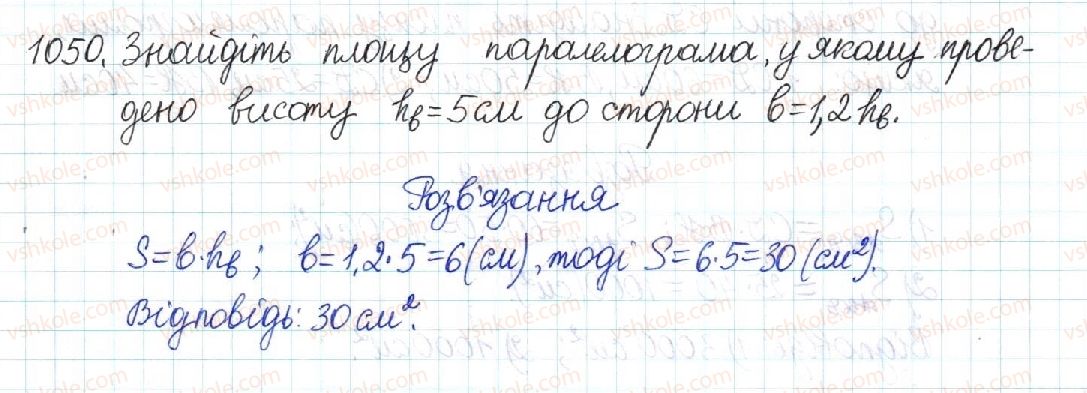 1050. Знайдіть площу паралелограма, у якому прове-
дено висоту hв = 5 см до сторони в = 1,2 hв.
Розв'язання
S = в · hв; в = 1,2 · 5 = 6 (см), тоді S = 6 · 5 = 30 (см²).
Відповідь: 30 см².